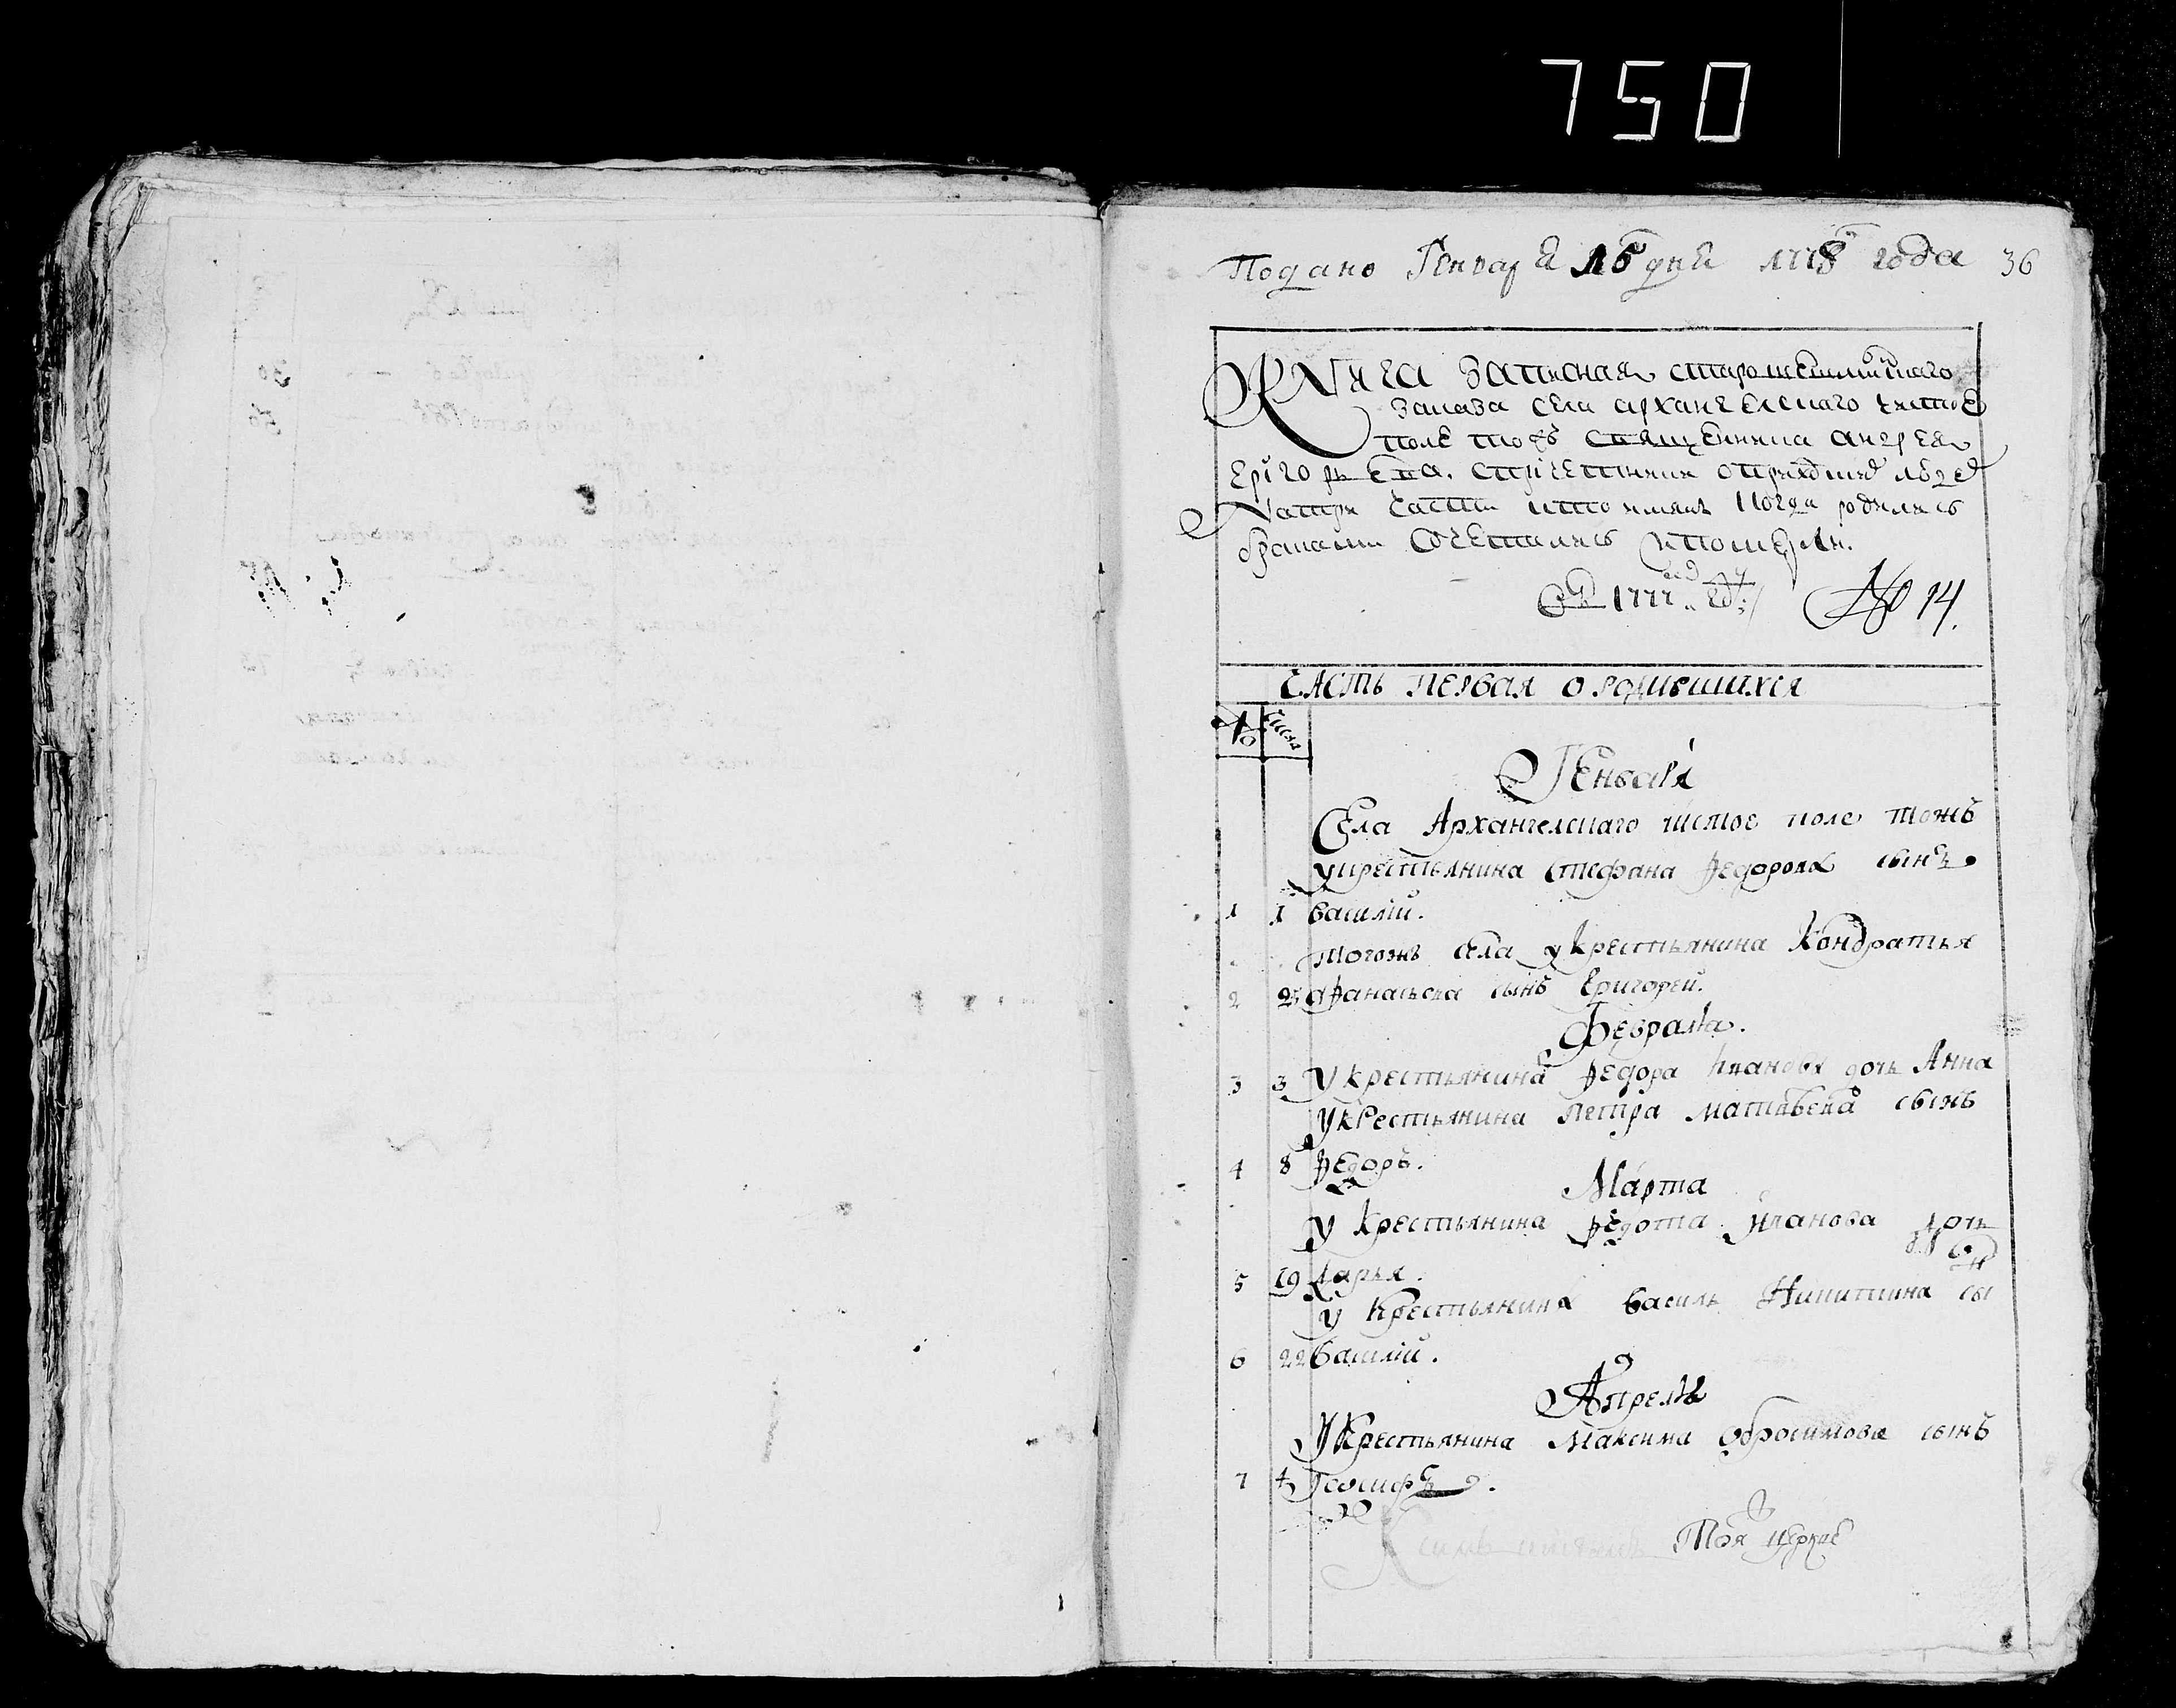 750
Подано Генваря 15 дня 1778 года 36
Книга записная старошешминскаго
заказа села архангелскаго чистое
поле тожъ священника андрея
григорьева. спричетники оприходскихъ людех
натри части кто имянъ Когда родились
браками Сочетались ипомерли.
1777 №о 14.
ЧАСТЬ ПЕРВАЯ О РОДИВШИХСЯ
№ числа
Генваря
Села Архангелскаго чистое поле тожъ
укрестьянина Стефана Федорова сынъ
1 1 василий.
тогожъ села укрестьянина Кондратья
2 25 афанасьева сынъ Григорей.
Февраля.
3 3 У крестьянина Федора Иванова дочь Анна
Укрестьянина петра матвеева сынъ
4 8 Федоръ.
Марта
У крестьянина Федота Иванова дочь
5 19 дарья.
У крестьянина василья Никитина сы
6 22 василий.
Апреля
Укрестьянина Максима Обросимова сынъ
7 4 Иосифъ.
Тоя церкве